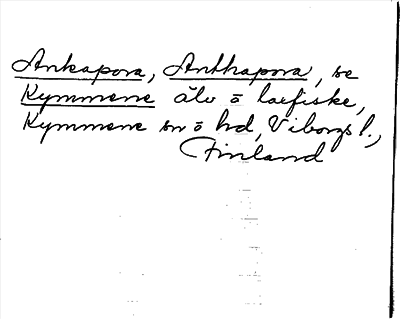 Ankapora, Anthapora, se
Kymmene älv ō laxfiske,
Kymmene sn ō hd, Viborgs l.,
Finland